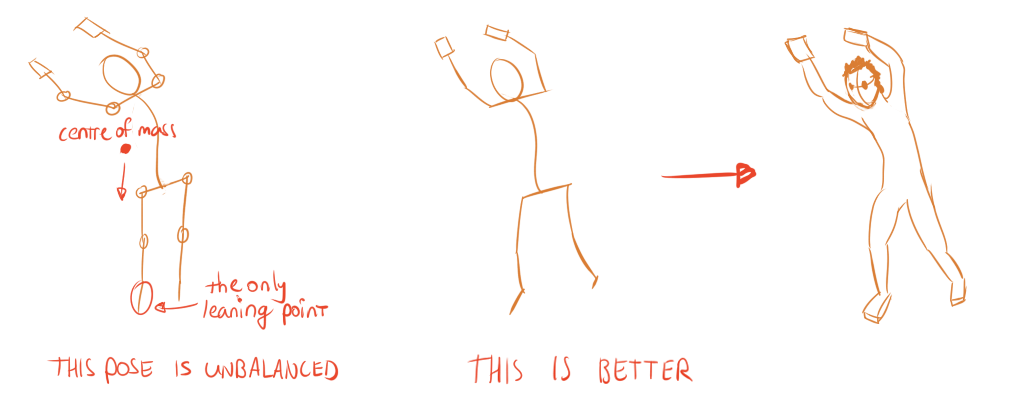 centre of mass
the only
leaning point
THIS POSE IS UNBALANCED
THIS IS BETTER